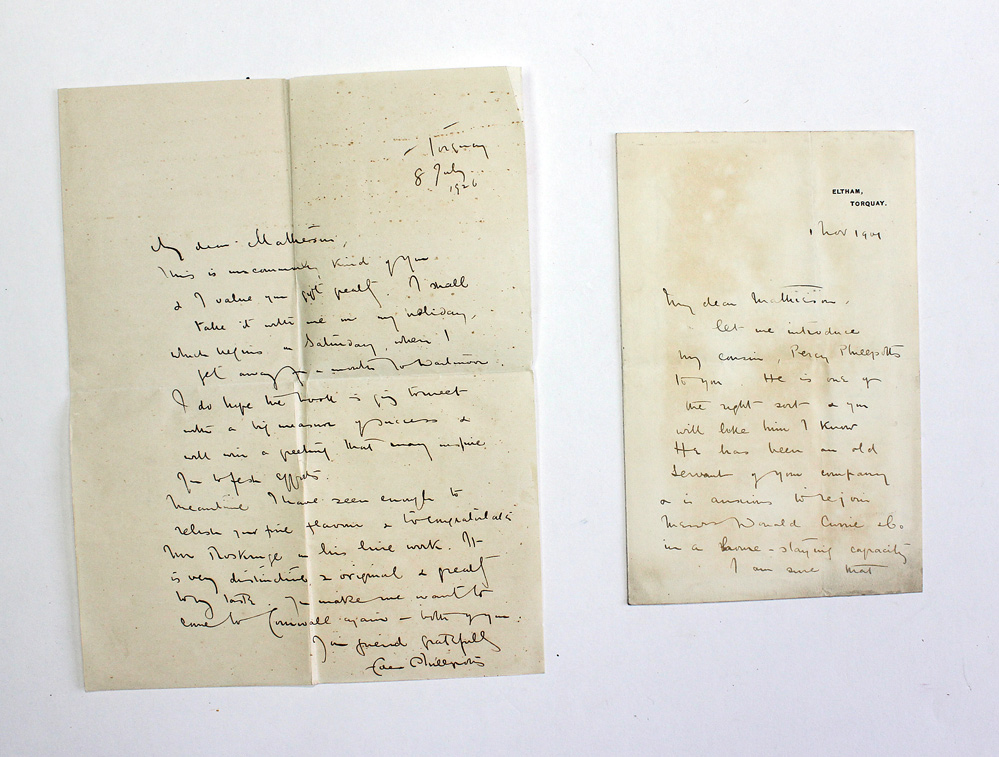 Torquay
8 July
1926
My dear Matheson,
This is uncommonly kind of you
& I value your gift greatly I shall
take it with me on my holiday,
which begins on Saturday, when I
get away for a month to Dartmoor.
I do hope the book is going to meet
with a big measure of success &
will win a greeting that may inspire
you to fresh efforts.
Meantime I have seen enough to
relish your fine flavour & to congratulate
Mr Roskruge on his line work. It
is very distinctive & original & greatly
to my taste. You make me want to
come to Cornwall again — both of you.
Your friend gratefully
Eden Phillpotts
ELTHAM,
TORQUAY.
1 Nov 1901
My dear Mathieson,
let me introduce
my cousin, Percy Phillpotts
to you. He is one of
the right sort & you
will like him I know
He has been an old
servant of your company
& is anxious to rejoin
Messrs Donald Currie & Co
in a home-staying capacity
I am sure that